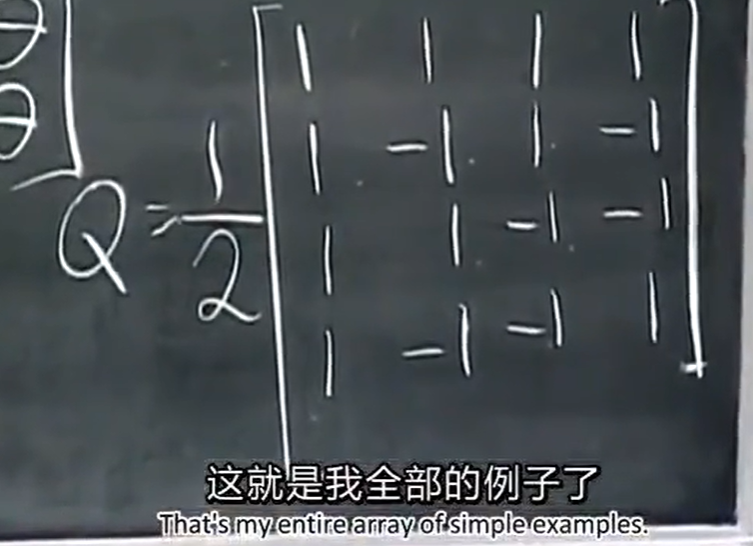 θ
θ
Q = 1/2
1 1 1 1
1 -1 1 -1
1 1 -1 -1
1 -1 -1 1
这就是我全部的例子了
That's my entire array of simple examples.